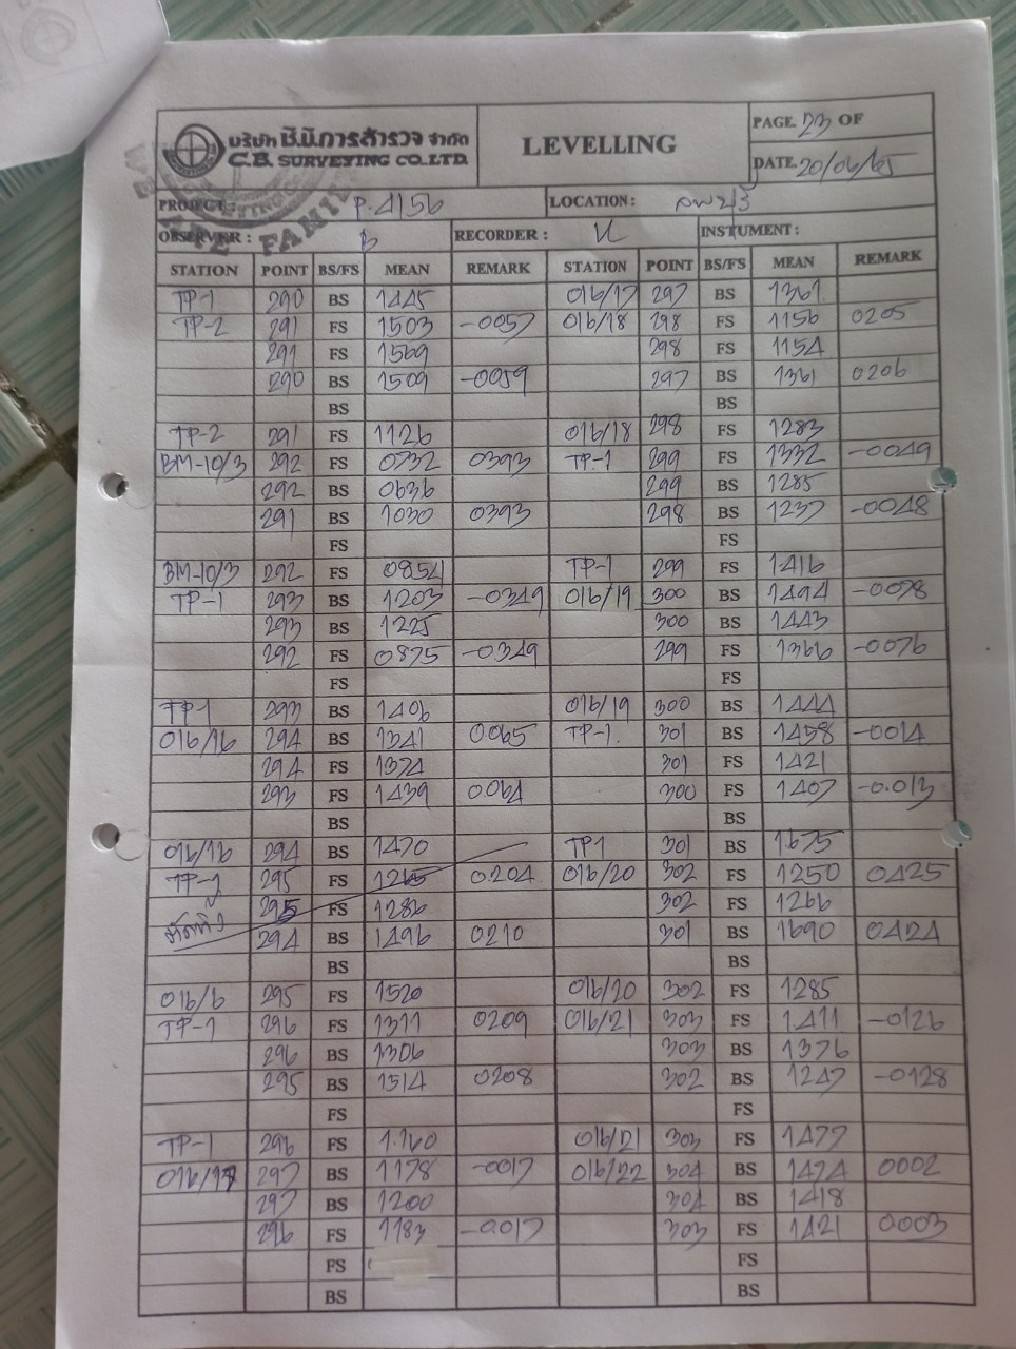 บริษัท ซี.บี.การสำรวจ จำกัด
C.B. SURVEYING CO.LTD.
LEVELLING
PAGE. 23 OF
DATE. 20/06/65
PROJECT: P.4156 LOCATION: ลพบุรี
OBSERVER : B RECORDER : INSTUMENT :
STATION POINT BS/FS MEAN REMARK STATION POINT BS/FS MEAN REMARK
TP-1 290 BS 1445 016/17 297 BS 1361
TP-2 291 FS 1503 -0057 016/18 298 FS 1156 0205
291 FS 1569 298 FS 1154
290 BS 1509 -0059 297 BS 1361 0206
BS BS
TP-2 291 FS 1126 016/18 298 FS 1283
BM-10/3 292 FS 0732 0393 TP-1 299 FS 1332 -0049
292 BS 0636 299 BS 1285
291 BS 1030 0393 298 BS 1237 -0048
FS FS
BM-10/3 292 FS 0854 TP-1 299 FS 1416
TP-1 293 BS 1203 -0349 016/19 300 BS 1494 -0078
293 BS 1225 300 BS 1443
292 FS 0875 -0349 299 FS 1366 -0076
FS FS
TP1 293 BS 1406 016/19 300 BS 1444
016/16 294 BS 1341 0065 TP-1. 301 BS 1458 -0014
294 FS 1374 301 FS 1421
293 FS 1439 0064 300 FS 1407 -0.013
BS BS
016/16 294 BS 1470 TP1 301 BS 1675
TP-1 295 FS 1265 0204 016/20 302 FS 1250 0425
295 FS 1286 302 FS 1266
294 BS 1496 0210 301 BS 1690 0424
BS BS
016/6 295 FS 1520 016/20 302 FS 1285
TP-1 296 FS 1311 0209 016/21 303 FS 1411 -0126
296 BS 1306 303 BS 1376
295 BS 1514 0208 302 BS 1247 -0128
FS FS
TP-1 296 FS 1.160 016/21 303 FS 1477
016/17 297 BS 1178 -0017 016/22 304 BS 1474 0002
297 BS 1200 304 BS 1418
296 FS 1183 -0017 303 FS 1421 0003
FS FS
BS BS